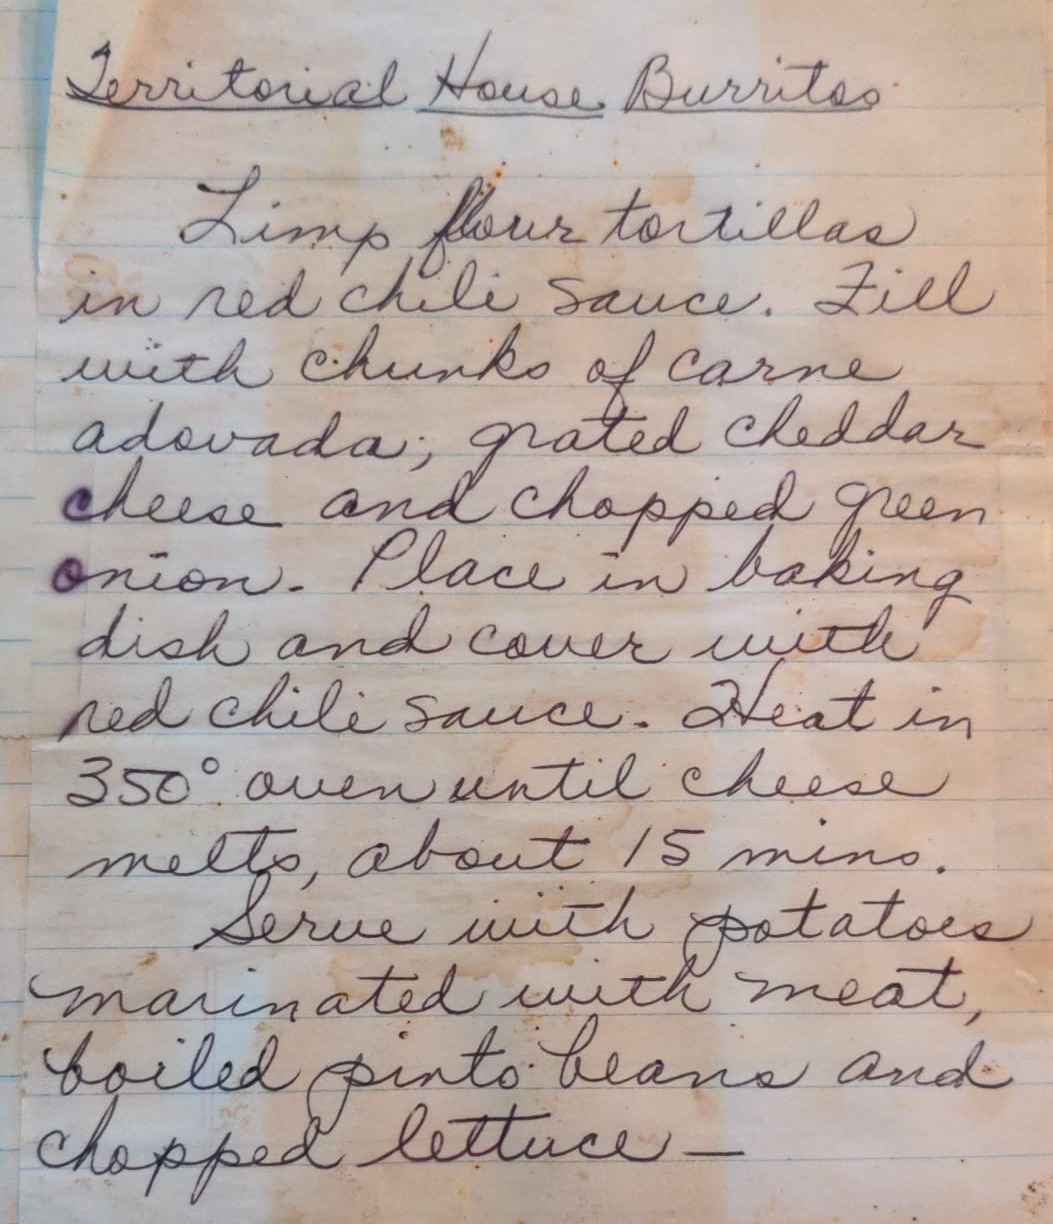 Territorial House Burritos
Limp flour tortillas
in red chili sauce. Fill
with chunks of carne
adovada, grated cheddar
cheese and chopped green
onion. Place in baking
dish and cover with
red chili sauce. Heat in
350° oven until cheese
melts, about 15 mins.
Serve with potatoes
marinated with meat,
boiled pinto beans and
chopped lettuce —